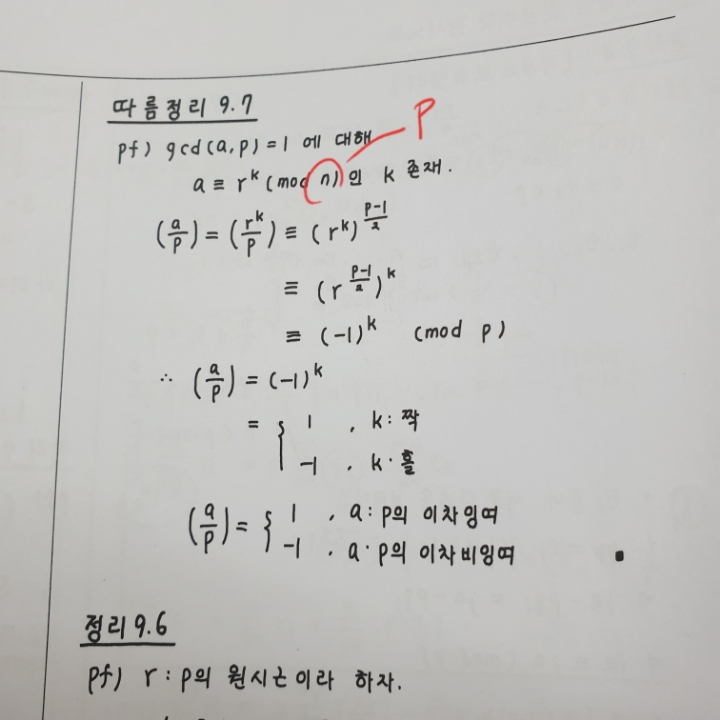 따름정리 9.7
P
pf) gcd(a, p) = 1 에 대해
a ≡ r^k (mod n) 인 k 존재.
(a/p) = (r^k/p) ≡ (r^k)^((p-1)/2)
≡ (r^((p-1)/2))^k
≡ (-1)^k (mod p)
∴ (a/p) = (-1)^k
= { 1 , k: 짝
-1 , k: 홀
(a/p) = { 1 , a: p의 이차잉여
-1 , a: p의 이차비잉여 ■
정리 9.6
pf) r : p의 원시근이라 하자.